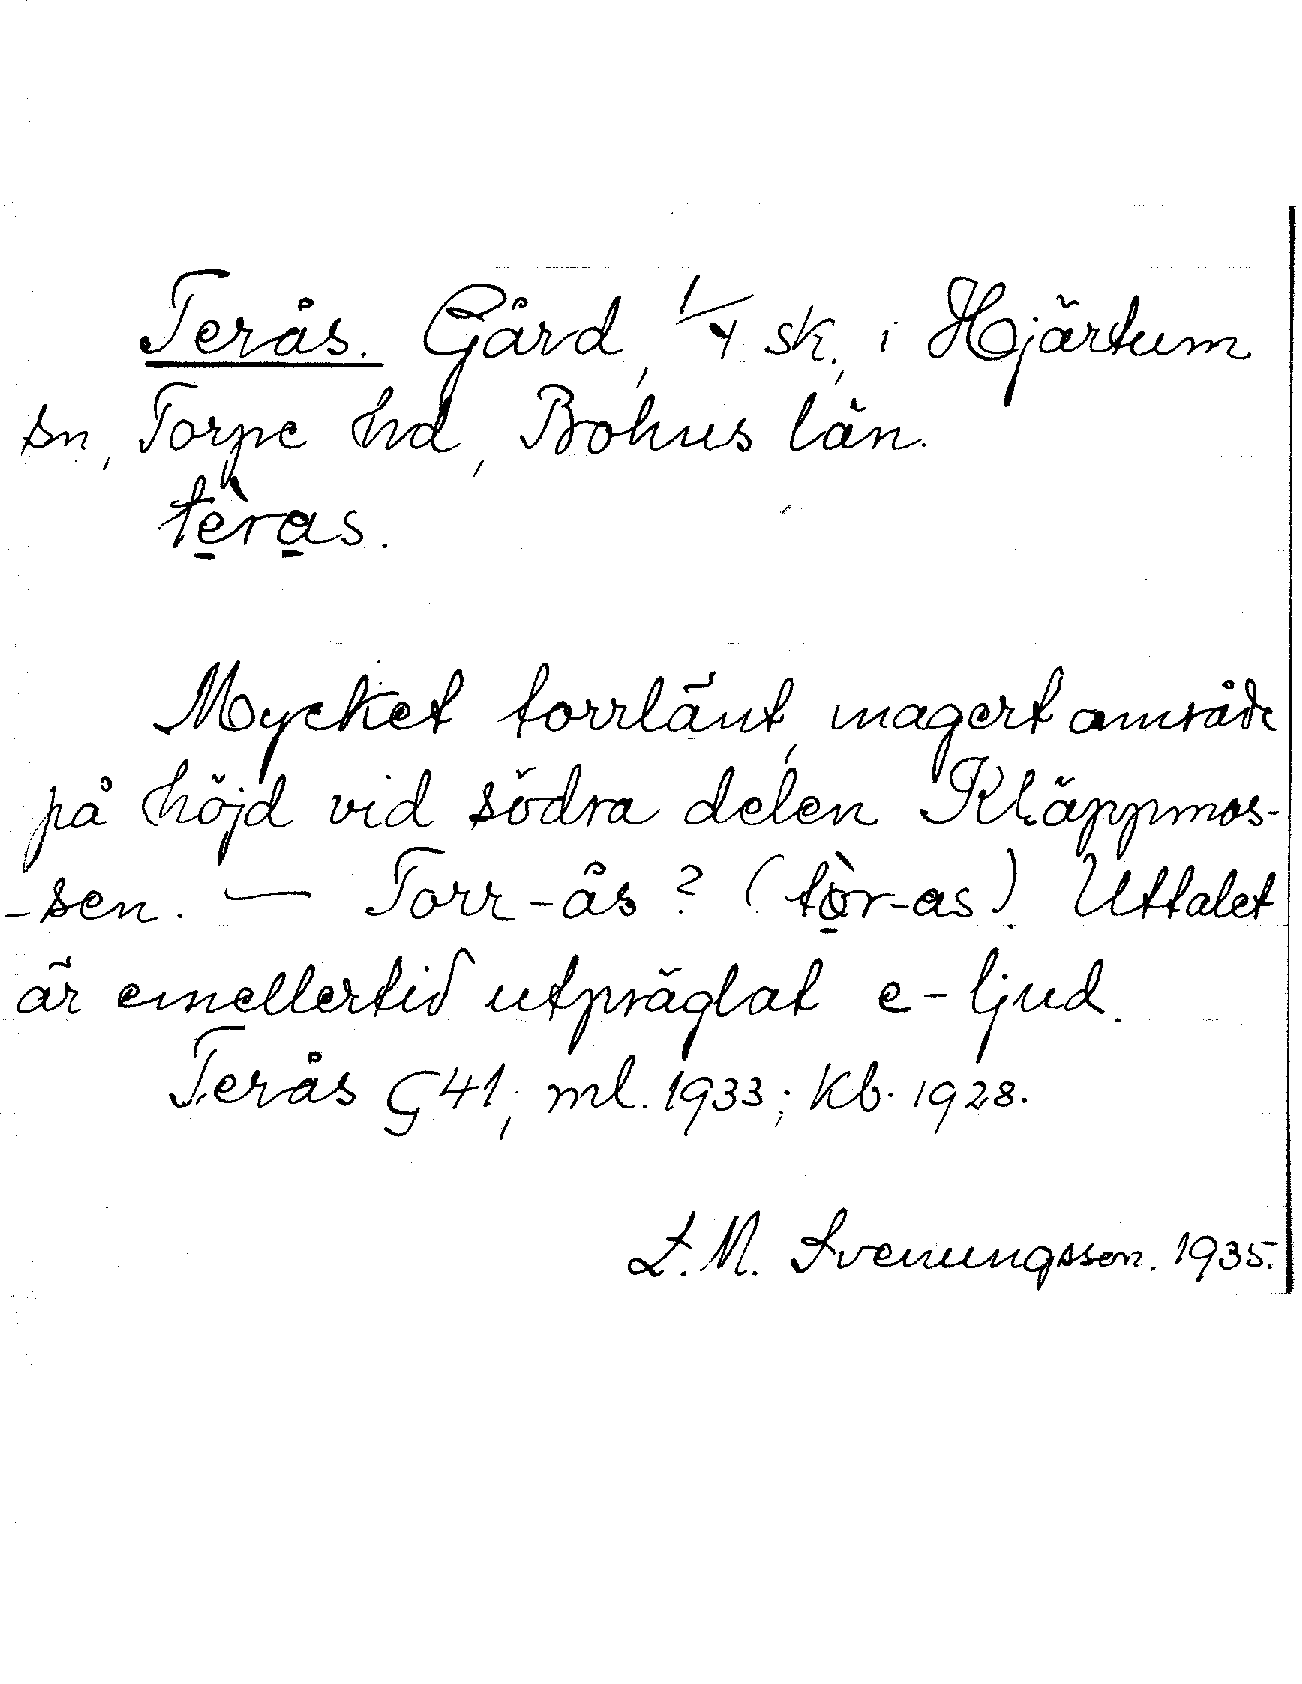 Terås. Gård, 1/4 sk, i Hjärtum
sn, Torpe hd, Bohus län.
tèras.
Mycket torrlänt, magert område
på höjd vid södra delen Kläppmos-
-sen. — Torr-ås? (tòr-as). Uttalet
är emellertid utpräglat e-ljud.
Terås G 41; ml. 1933; Kb. 1928.
L. M. Svenungsson. 1935.